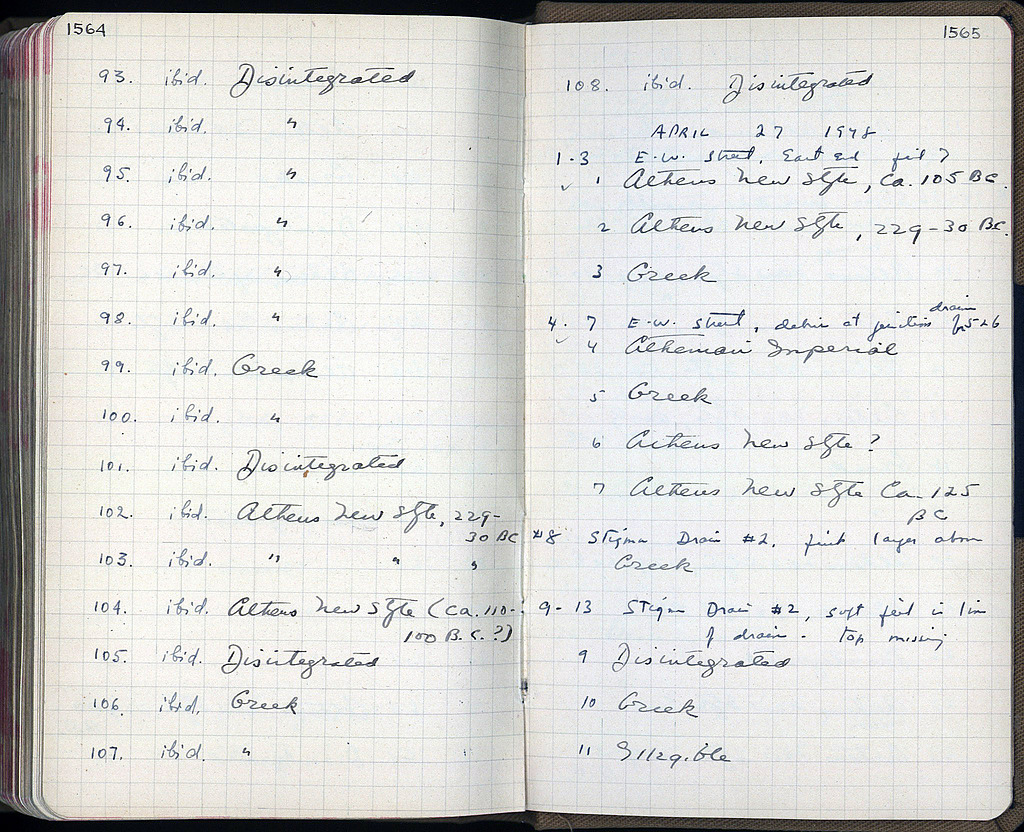 1564
93. ibid. Disintegrated
94. ibid. "
95. ibid. "
96. ibid. "
97. ibid. "
98. ibid. "
99. ibid. Greek
100. ibid. "
101. ibid. Disintegrated
102. ibid. Athens New Style, 229-
30 BC
103. ibid. " " "
104. ibid. Athens New Style (ca. 110-
100 B.C.?)
105. ibid. Disintegrated
106. ibid. Greek
107. ibid. "
1565
108. ibid. Disintegrated
APRIL 27 1948
1-3 E-W. Street, East end fill 7
✓ 1 Athens New Style, Ca. 105 BC.
2 Athens New Style, 229-30 BC.
3 Greek
drain
4-7 E-W. Street, debris at junction 5+6
✓ 4 Athenian Imperial
5 Greek
6 Athens New Style?
7 Athens New Style Ca. 125
BC
#8 Stigma Drain #2, layer above
Greek
9-13 Stigma Drain #2, soft fill in line
of drain. top missing
9 Disintegrated
10 Greek
11 Illegible